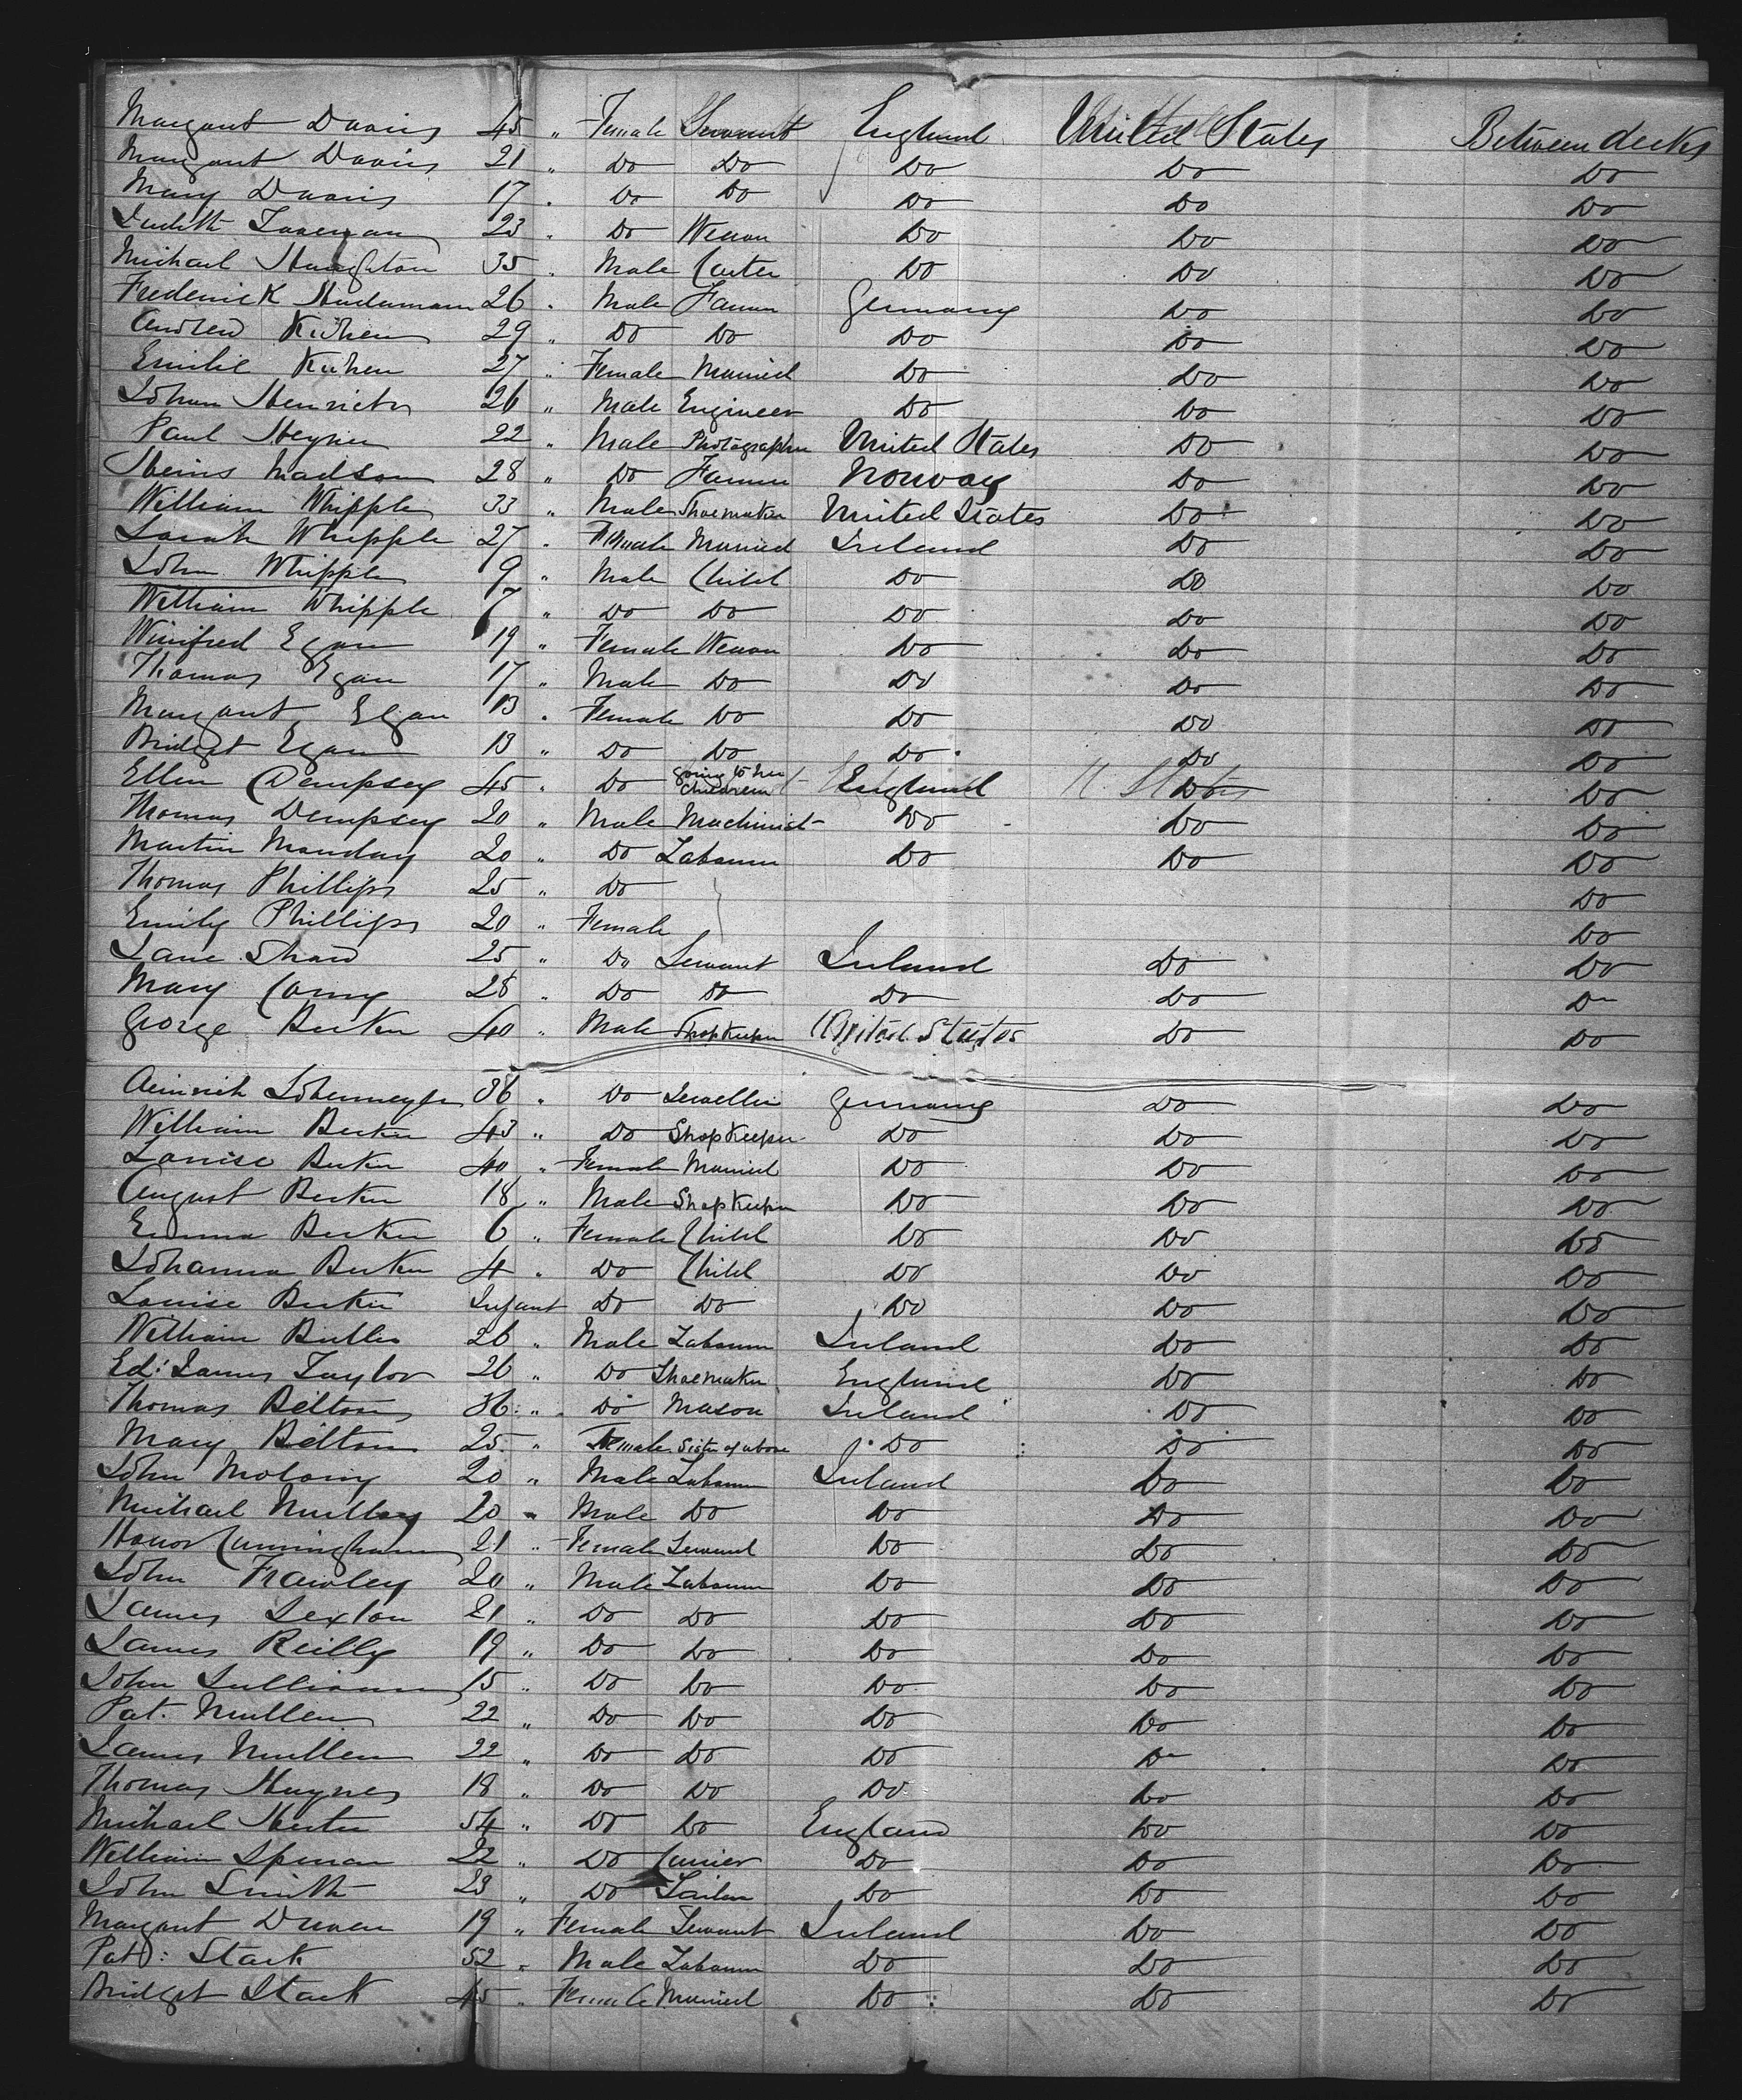 Margaret Davis 45 " Female Servant England United States Between decks
Margaret Davis 21 " Do Do Do Do Do
Mary Davis 17 " Do Do Do Do Do
Judith 23 " Do Weaver Do Do Do
Michael Haughton 35 " Male Carter Do Do Do
Frederick 26 " Male Farmer Germany Do Do
Andrew Kuhen 29 " Do Do Do Do Do
Emilie Kuhen 27 " Female Married Do Do Do
Johan Henricks 26 " Male Engineer Do Do Do
Paul 22 " Male Photographer United States Do Do
Madson 28 " Do Farmer Norway Do Do
William Whipple 33 " Male Shoemaker United States Do Do
Sarah Whipple 27 " Female Married Ireland Do Do
John Whipple 9 " Male Child Do Do Do
William Whipple 7 " Do Do Do Do Do
Winifred Egan 19 " Female Weaver Do Do Do
Thomas Egan 17 " Male Do Do Do Do
Margaret Egan 13 " Female Do Do Do Do
Bridget Egan 13 " Do Do Do Do Do
Ellen Dempsey 45 " Do going to her children England U. States Do Do
Thomas Dempsey 20 " Male Machinist Do Do Do
Martin Monday 20 " Do Labourer Do Do Do
Thomas Phillips 25 " Do Do
Emily Phillips 20 " Female Do
Jane Shaw 25 " Do Servant Ireland Do Do
Mary 28 " Do Do Do Do Do
George Becker 40 " Male Shopkeeper United States Do Do
Heinrich Lohemeyer 36 " Do Jeweller Germany Do Do
William Becker 43 " Do Shopkeeper Do Do Do
Louise Becker 40 " Female Married Do Do Do
August Becker 18 " Male Shopkeeper Do Do Do
Emma Becker 6 " Female Child Do Do Do
Johanna Becker 4 " Do Child Do Do Do
Louise Becker Infant Do Do Do Do Do
William Butler 26 " Male Labourer Ireland Do Do
Ed: James Taylor 26 " Do Shoemaker England Do Do
Thomas Bolton 36 " Do Mason Ireland Do Do
Mary Bolton 25 " Female Sister of above Do Do Do
John Molony 20 " Male Labourer Ireland Do Do
Michael 20 " Male Do Do Do Do
Honor Cunningham 21 " Female Servant Do Do Do
John Frawley 20 " Male Labourer Do Do Do
James Sexton 21 " Do Do Do Do Do
James Reilly 19 " Do Do Do Do Do
John Sullivan 15 " Do Do Do Do Do
Pat. Mullen 22 " Do Do Do Do Do
James Mullen 22 " Do Do Do Do Do
Thomas Haynes 18 " Do Do Do Do Do
Michael 54 " Do Do England Do Do
William 22 " Do Currier Do Do Do
John Smith 23 " Do Sailor Do Do Do
Margaret 19 " Female Servant Ireland Do Do
Pat: Stack 52 " Male Labourer Do Do Do
Bridget Stack 45 " Female Married Do Do Do